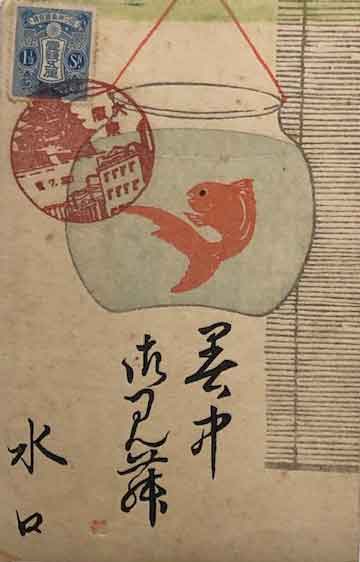 1½ Sn
暑中
御見舞
水口